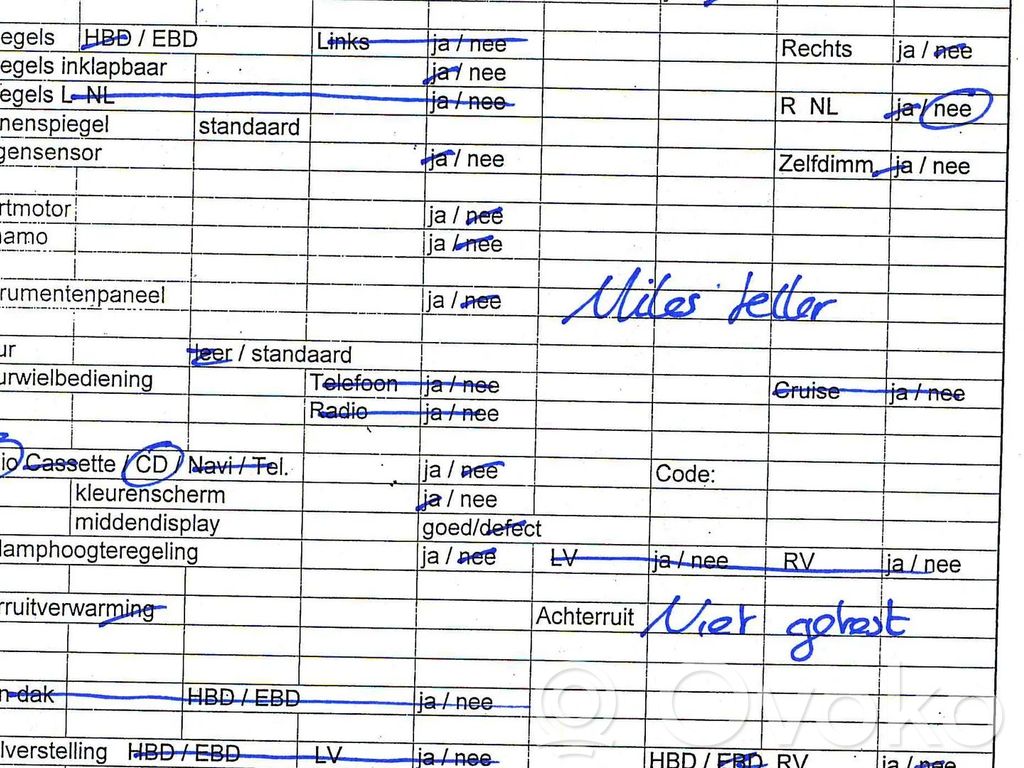 egels HBD / EBD Links ja / nee Rechts ja / nee
egels inklapbaar ja / nee
egels L NL ja / nee R NL ja / nee
nenspiegel standaard
gensensor ja / nee Zelfdimm ja / nee
rtmotor ja / nee
namo ja / nee
rumentenpaneel ja / nee Miles teller
ur leer / standaard
urwielbediening Telefoon ja / nee Cruise ja / nee
Radio ja / nee
io Cassette / CD / Navi / Tel. ja / nee Code:
kleurenscherm ja / nee
middendisplay goed/defect
lamphoogteregeling ja / nee LV ja / nee RV ja / nee
rruitverwarming Achterruit Niet getest
n dak HBD / EBD ja / nee
lverstelling HBD / EBD LV ja / nee HBD / EBD RV ja / nee
Ovoko